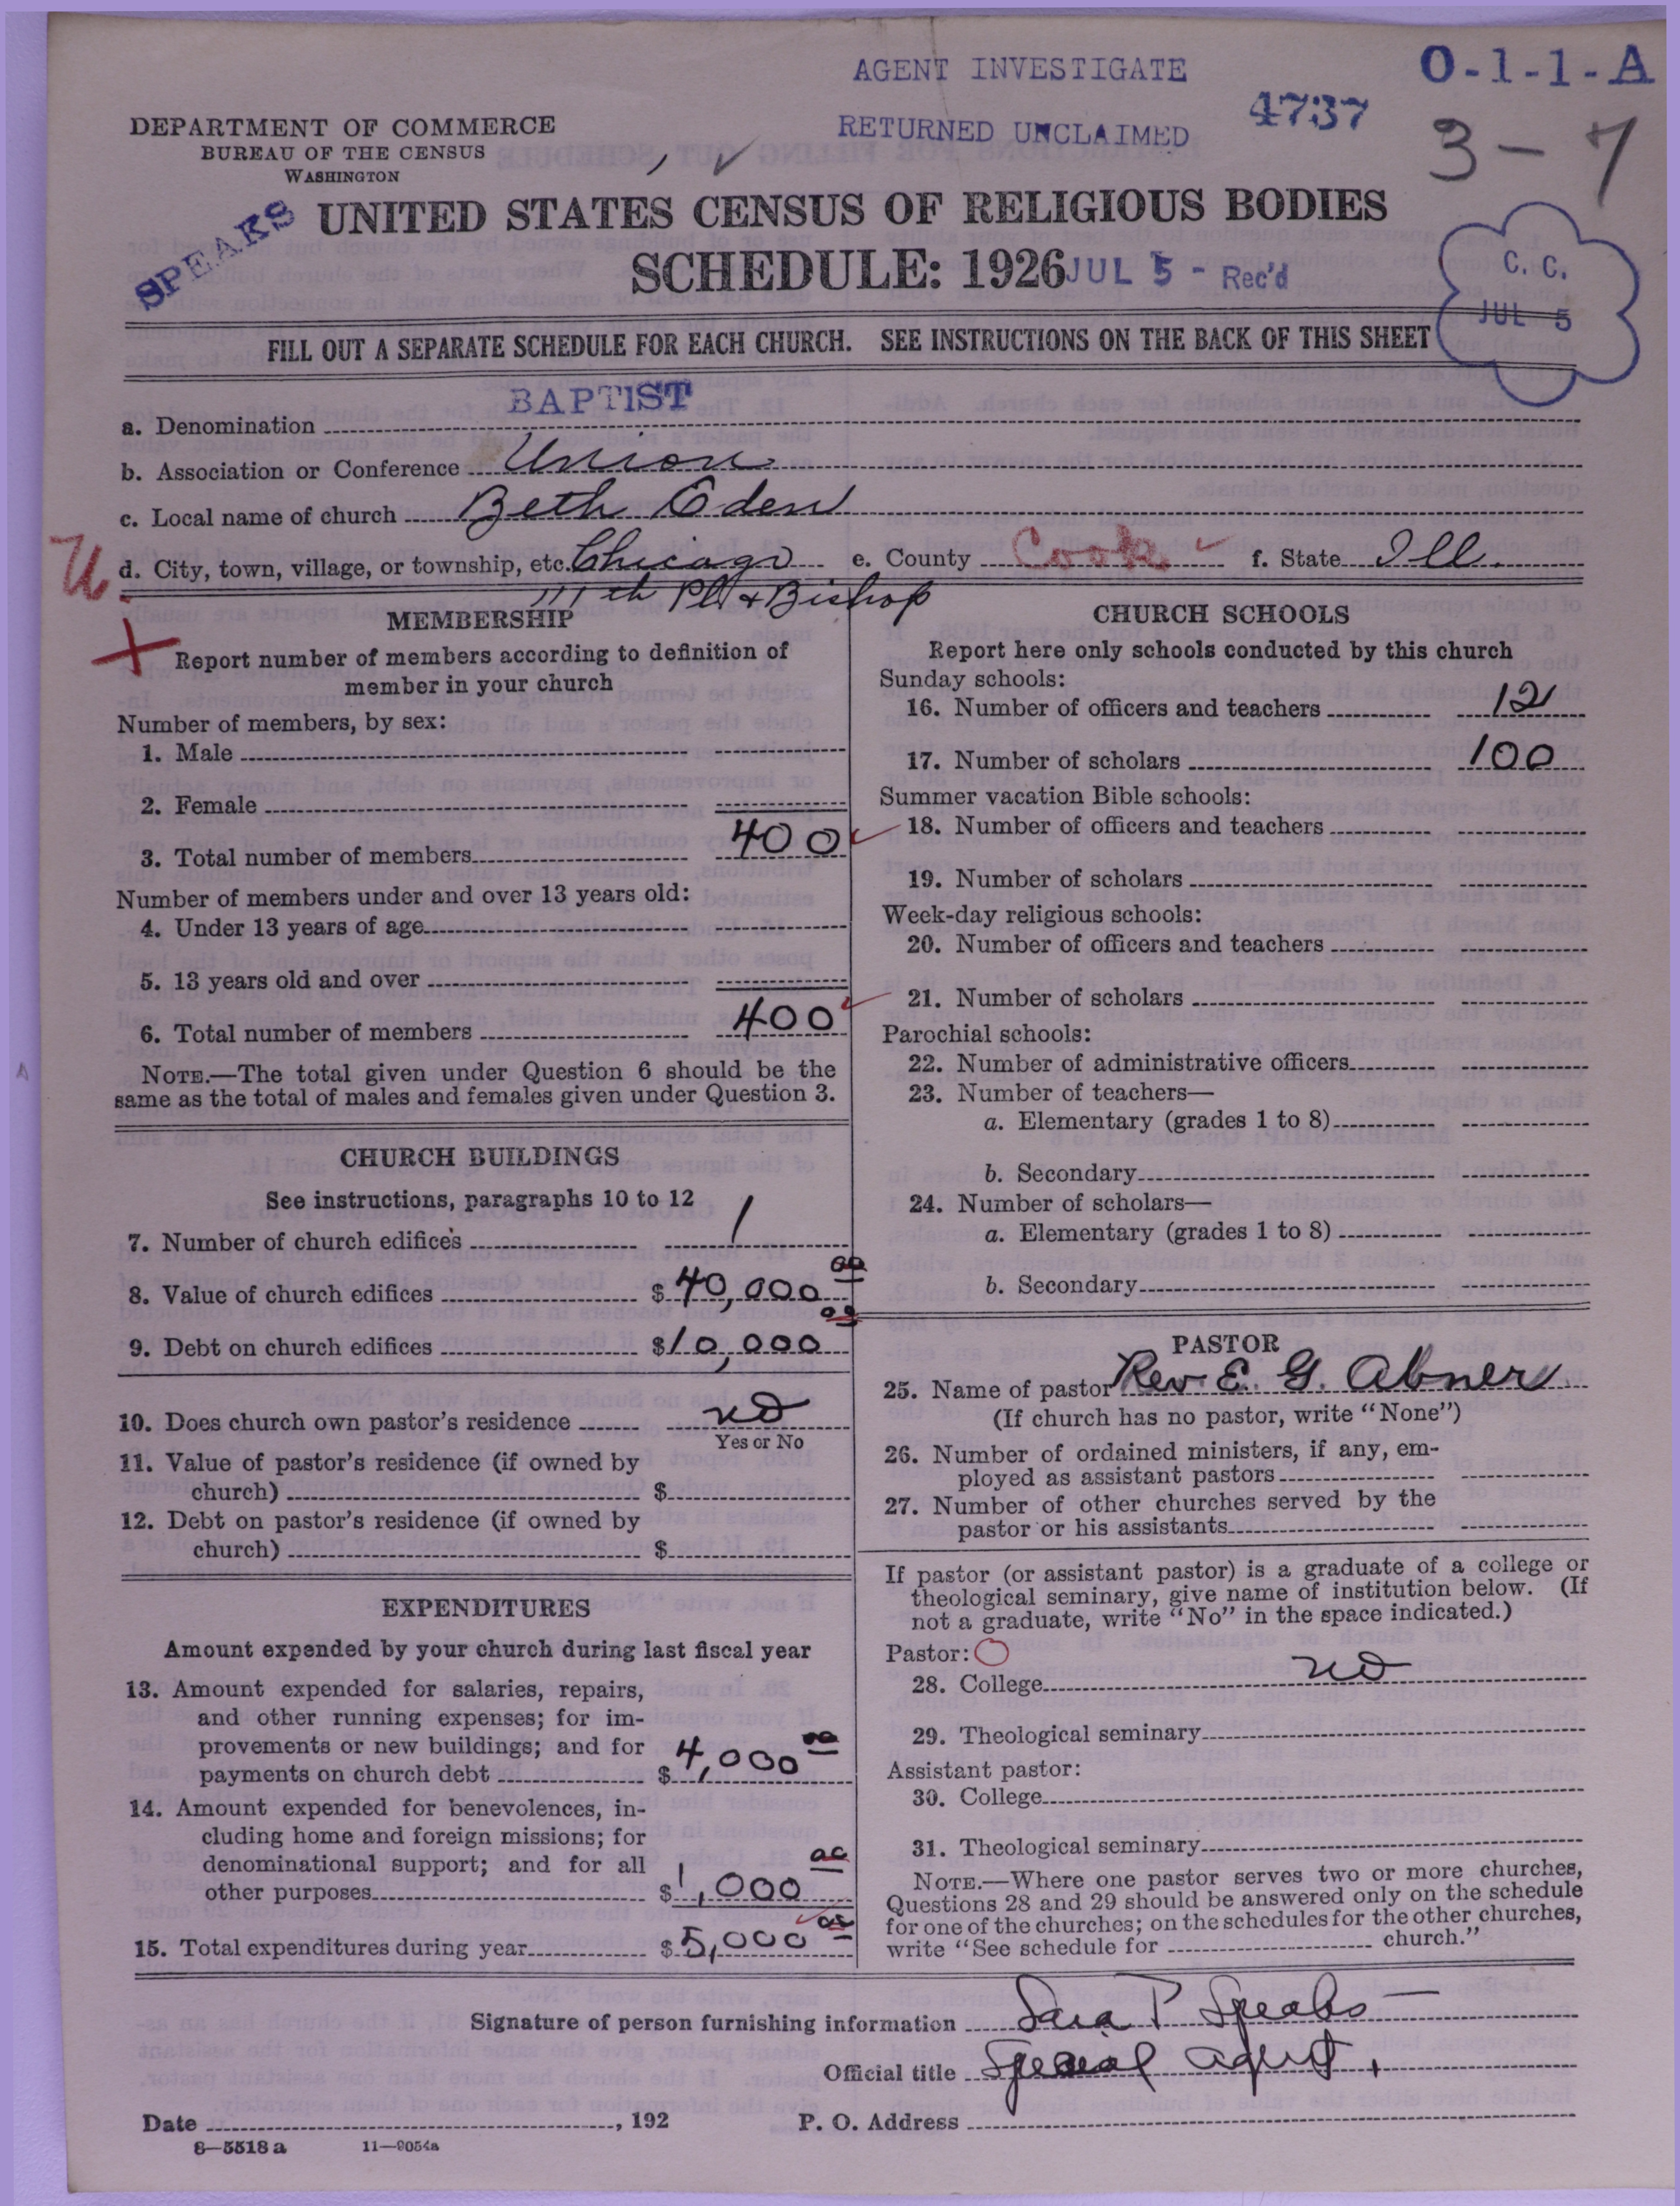 AGENT INVESTIGATE
O-1-1-A
RETURNED UNCLAIMED
4737
3-7
DEPARTMENT OF COMMERCE
BUREAU OF THE CENSUS
WASHINGTON
SPEAKS
UNITED STATES CENSUS OF RELIGIOUS BODIES
SCHEDULE: 1926
JUL 5 - Rec'd
C. C.
JUL 5
FILL OUT A SEPARATE SCHEDULE FOR EACH CHURCH. SEE INSTRUCTIONS ON THE BACK OF THIS SHEET
BAPTIST
a. Denomination
b. Association or Conference Union
c. Local name of church Beth Eden
U.
d. City, town, village, or township, etc. Chicago e. County Cook f. State Ill.
111th Pl & Bishop
MEMBERSHIP
Report number of members according to definition of
member in your church
Number of members, by sex:
1. Male
2. Female
3. Total number of members 400
Number of members under and over 13 years old:
4. Under 13 years of age
5. 13 years old and over
6. Total number of members 400
NOTE.—The total given under Question 6 should be the
same as the total of males and females given under Question 3.
CHURCH BUILDINGS
See instructions, paragraphs 10 to 12
7. Number of church edifices 1
8. Value of church edifices $40,000 00
9. Debt on church edifices $10,000 00
10. Does church own pastor's residence no
Yes or No
11. Value of pastor's residence (if owned by
church) $
12. Debt on pastor's residence (if owned by
church) $
EXPENDITURES
Amount expended by your church during last fiscal year
13. Amount expended for salaries, repairs,
and other running expenses; for im-
provements or new buildings; and for
payments on church debt $4,000 00
14. Amount expended for benevolences, in-
cluding home and foreign missions; for
denominational support; and for all
other purposes $1,000 00
15. Total expenditures during year $5,000 00
CHURCH SCHOOLS
Report here only schools conducted by this church
Sunday schools:
16. Number of officers and teachers 12
17. Number of scholars 100
Summer vacation Bible schools:
18. Number of officers and teachers
19. Number of scholars
Week-day religious schools:
20. Number of officers and teachers
21. Number of scholars
Parochial schools:
22. Number of administrative officers
23. Number of teachers—
a. Elementary (grades 1 to 8)
b. Secondary
24. Number of scholars—
a. Elementary (grades 1 to 8)
b. Secondary
PASTOR
25. Name of pastor Rev. E. G. Abner
(If church has no pastor, write "None")
26. Number of ordained ministers, if any, em-
ployed as assistant pastors
27. Number of other churches served by the
pastor or his assistants
If pastor (or assistant pastor) is a graduate of a college or
theological seminary, give name of institution below. (If
not a graduate, write "No" in the space indicated.)
Pastor:
28. College no
29. Theological seminary
Assistant pastor:
30. College
31. Theological seminary
NOTE.—Where one pastor serves two or more churches,
Questions 28 and 29 should be answered only on the schedule
for one of the churches; on the schedules for the other churches,
write "See schedule for church."
Signature of person furnishing information Sara P Speaks
Official title Special agent.
Date , 192 P. O. Address
8—5518 a 11—9054a